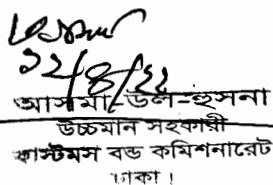 ১২/৪/২২
আসমা-উল-হুসনা
উচ্চমান সহকারী
কাস্টমস বন্ড কমিশনারেট
ঢাকা।